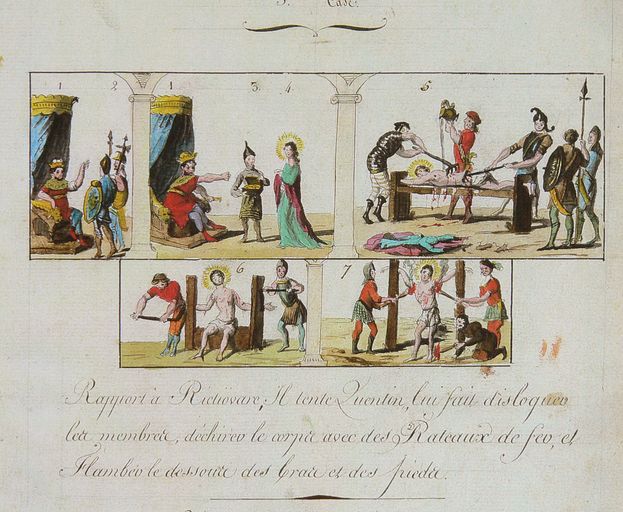 Case.
1 2 1 3. 4. 5
6 7
Rapport à Rictiovare; Il tente Quentin, lui fait disloquer
les membres, déchirer le corps avec des Rateaux de fer, et
Flamber le dessous des bras et des pieds.